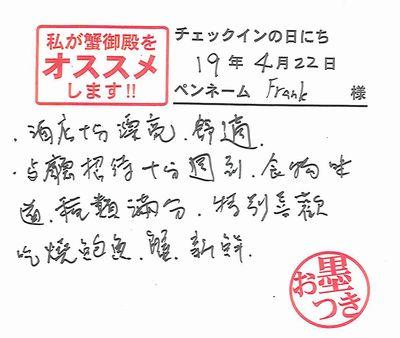 私が蟹御殿を
オススメ
します!!
チェックインの日にち
19年4月22日
ペンネーム Frank 様
・酒店十分漂亮、舒適
・与廳招待十分週到、食物味
道、種類滿分、特別喜歡
吃燒鮑魚、蟹、新鮮.
お墨
つき